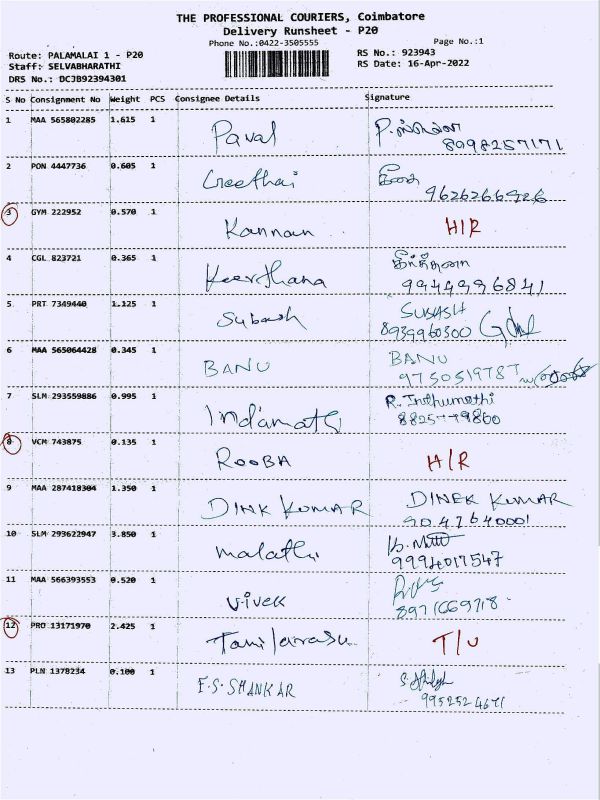 THE PROFESSIONAL COURIERS, Coimbatore
Delivery Runsheet - P20
Phone No.:0422-3505555
Page No.:1
Route: PALAMALAI 1 - P20
RS No.: 923943
Staff: SELVABHARATHI
RS Date: 16-Apr-2022
DRS No.: DCJB92394301
S No Consignment No Weight PCS Consignee Details Signature
1 MAA 565802285 1.615 1 Paval
8098257171
2 PON 4447736 0.605 1 Geethai
9626266926
3 GYM 222952 0.570 1 Kannan H/R
4 CGL 823721 0.365 1 Keerthana கீர்த்தனா
9944996841
5 PRT 7349440 1.125 1 Subash SUBASH
8939960300
6 MAA 565064428 0.345 1 BANU BANU
9750519787
7 SLM 293559886 0.995 1 Indumathi R. Indhumathi
8 VCM 743875 0.135 1 ROOBA H/R
9 MAA 287418304 1.350 1 DINK KUMAR DINEK KUMAR
9047640001
10 SLM 293622947 3.850 1 Malathi
9994017547
11 MAA 566393553 0.520 1 Vivek
8971669718
12 PRO 13171970 2.425 1 Tamilarasu T/U
13 PLN 1378234 0.100 1 F.S. SHANKAR
9952524671